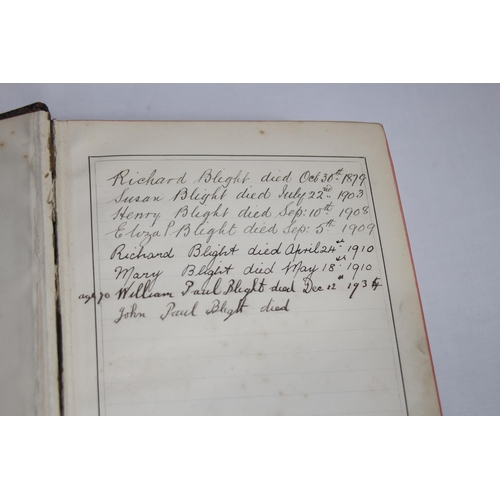 Richard Blight died Oct 30th 1879
Susan Blight died July 22nd 1903
Henry Blight died Sep: 10th 1908
Eliza P Blight died Sep: 5th 1909
Richard Blight died April 24th 1910
Mary Blight died May 18th 1910
age 70 William Paul Blight died Dec 12th 1934
John Paul Blight died